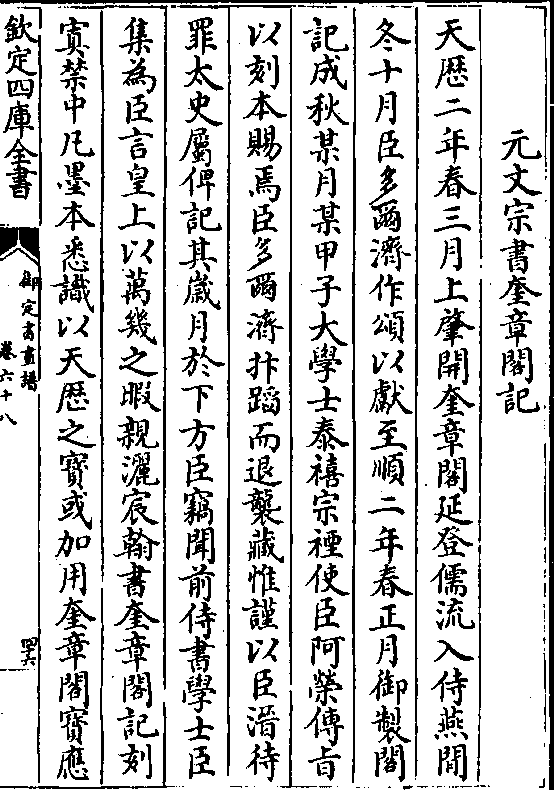 元文宗書奎章閣記
天歴二年春三月上肇開奎章閣延登儒流入侍燕閒
冬十月臣多爾濟作頌以獻至順二年春正月御製閣
記成秋某月某甲子大學士泰禧宗禋使臣阿榮傳旨
以刻本賜焉臣多爾濟抃蹈而退襲藏惟謹以臣溍待
罪太史屬俾記其歲月於下方臣竊聞前侍書學士臣
集為臣言皇上以萬幾之暇親灑宸翰書奎章閣記刻
寘禁中凡墨本悉識以天歴之寶或加用奎章閣寶應
欽定四庫全書
御定書畫譜
卷六十八
四六